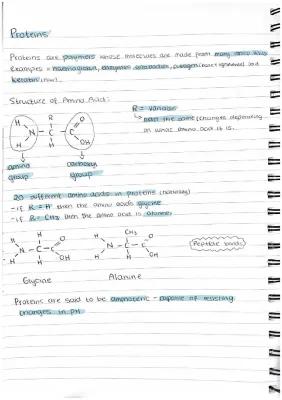 Proteins
Proteins are polymers whose molecules are made from many amino acids
examples = haemoglobin, enzymes, antibodies, collagen (bones + ligaments) and
keratin (hair).
Structure of Amino Acid:
R = variable
not the same (changes depending
on what amino acid it is.
H R O
N - C - C
H H OH
amino group
carboxyl group
20 different amino acids in proteins (naturally)
- if R = H then the amino acid's glycine
- if R = CH3 then the amino acid is alanine.
H H O
N - C - C
H H OH
H CH3 O
N - C - C
H H OH
Peptide bonds
Glycine
Alanine
Proteins are said to be amphoteric - capable of resisting
changes in pH